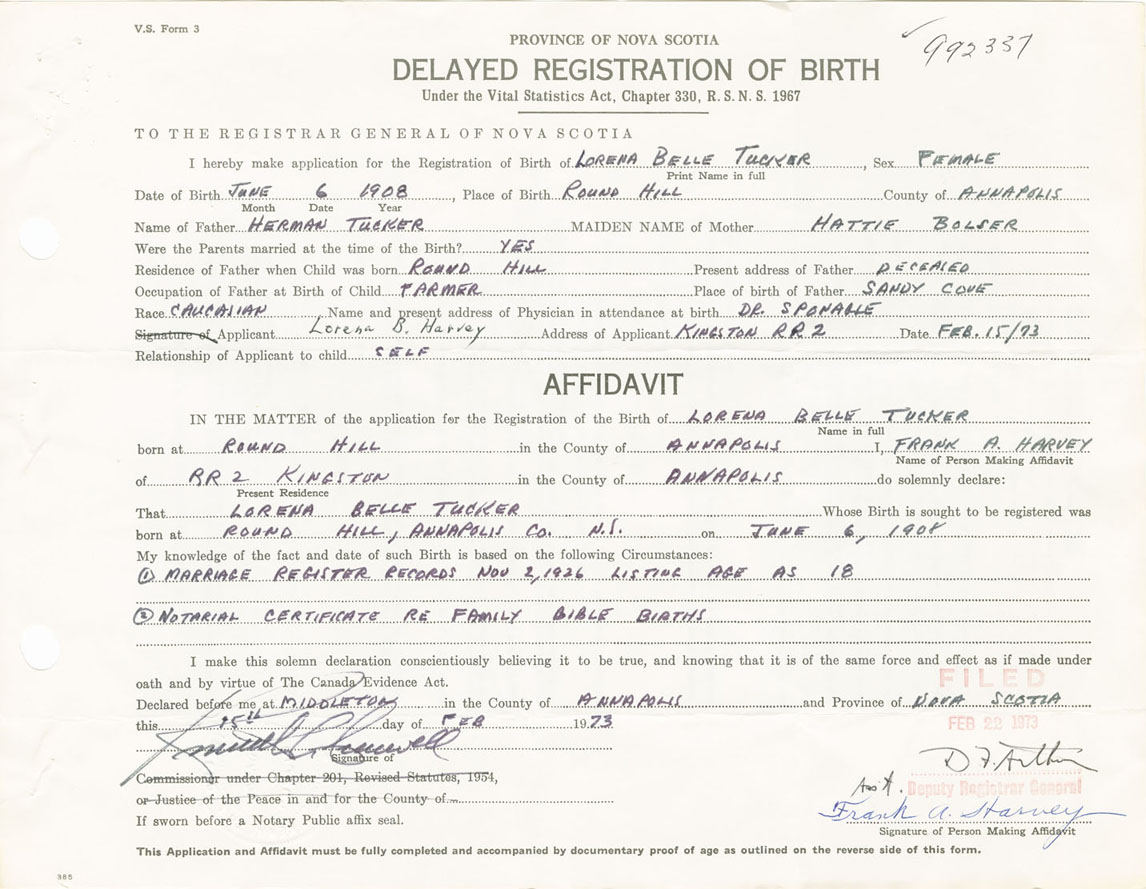 V.S. Form 3
992337
PROVINCE OF NOVA SCOTIA
DELAYED REGISTRATION OF BIRTH
Under the Vital Statistics Act, Chapter 330, R. S. N. S. 1967
TO THE REGISTRAR GENERAL OF NOVA SCOTIA
I hereby make application for the Registration of Birth of LORENA BELLE TUCKER, Sex FEMALE
Print Name in full
Date of Birth JUNE 6 1908, Place of Birth ROUND HILL County of ANNAPOLIS
Month Date Year
Name of Father HERMAN TUCKER MAIDEN NAME of Mother HATTIE BOLSER
Were the Parents married at the time of the Birth? YES
Residence of Father when Child was born ROUND HILL Present address of Father DECEASED
Occupation of Father at Birth of Child FARMER Place of birth of Father SANDY COVE
Race CAUCASIAN Name and present address of Physician in attendance at birth DR. SPONAGLE
Signature of Applicant Lorena B. Harvey Address of Applicant KINGSTON RR 2 Date FEB. 15/73
Relationship of Applicant to child SELF
AFFIDAVIT
IN THE MATTER of the application for the Registration of the Birth of LORENA BELLE TUCKER
Name in full
born at ROUND HILL in the County of ANNAPOLIS I, FRANK A. HARVEY
Name of Person Making Affidavit
of RR 2 KINGSTON in the County of ANNAPOLIS do solemnly declare:
Present Residence
That LORENA BELLE TUCKER Whose Birth is sought to be registered was
born at ROUND HILL, ANNAPOLIS CO. N.S. on JUNE 6, 1908
My knowledge of the fact and date of such Birth is based on the following Circumstances:
(1) MARRIAGE REGISTER RECORDS NOV 2, 1926 LISTING AGE AS 18
(2) NOTARIAL CERTIFICATE RE FAMILY BIBLE BIRTHS
I make this solemn declaration conscientiously believing it to be true, and knowing that it is of the same force and effect as if made under
oath and by virtue of The Canada Evidence Act.
FILED
Declared before me at MIDDLETON in the County of ANNAPOLIS and Province of NOVA SCOTIA
this 15th day of FEB 1973
FEB 22 1973
Signature of
Commissioner under Chapter 201, Revised Statutes, 1954,
or Justice of the Peace in and for the County of
Ass't. Deputy Registrar General
Frank A. Harvey
If sworn before a Notary Public affix seal.
Signature of Person Making Affidavit
This Application and Affidavit must be fully completed and accompanied by documentary proof of age as outlined on the reverse side of this form.
385